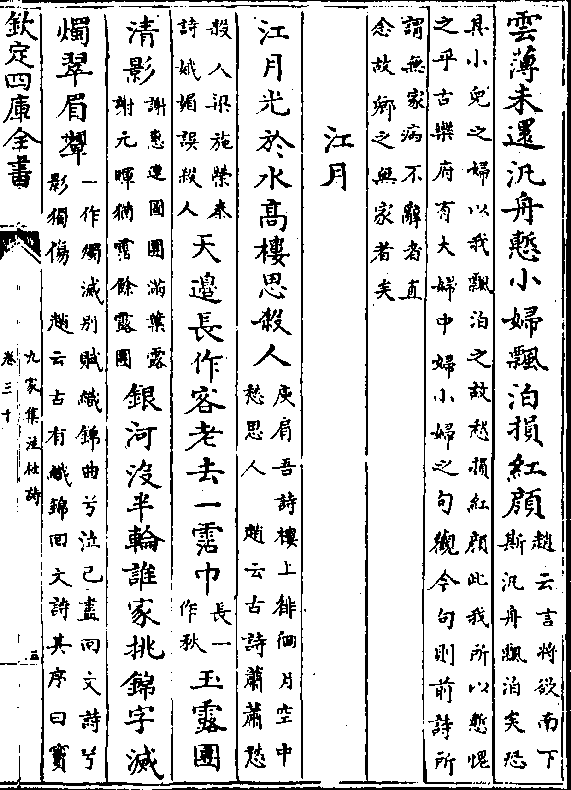 雲薄未還汎舟慙小婦飄泊損紅顔
趙云言將欲南下
斯汎舟飄泊矣恐
具小兒之婦以我飄泊之故愁損紅顔此我所以慙愧
之乎古樂府有大婦中婦小婦之句觀今句則前詩所
謂無家病不辭者直
念故鄉之無家者矣
江月
江月光於水高樓思殺人
庾肩吾詩樓上徘徊月空中
愁思人 趙云古詩蕭蕭愁
殺人梁施榮泰
詩娥媚誤殺人
天邉長作客老去一霑巾
長一
作秋
玉露團
清影
謝惠連團團滿葉露
謝元暉猶霑餘露團
銀河沒半輪誰家挑錦字滅
燭翠眉顰
一作燭滅别賦織錦曲兮泣已盡回文詩兮
影獨傷 趙云古有織錦回文詩其序曰竇
欽定四庫全書
九家集注杜詩
卷三十
五